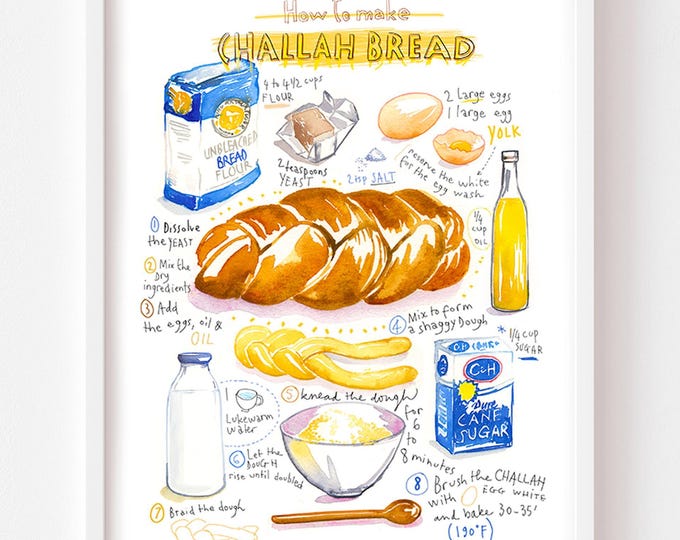 How to make
CHALLAH BREAD
4 to 4 1/2 cups
FLOUR
UNBLEACHED
BREAD
FLOUR
2 teaspoons
YEAST
2 tsp SALT
2 Large eggs
1 large egg
YOLK
reserve the white
for the egg wash
1/4
cup
OIL
1 Dissolve
the YEAST
2 Mix the
Dry
ingredients
3 Add
the eggs, oil &
OIL
4 Mix to form
a shaggy Dough
* 1/4 cup
SUGAR
C&H
C&H
Pure
CANE
SUGAR
1
Lukewarm
water
5 knead the dough
for
6
to
8 minutes
6 Let the
DOUGH
rise until doubled
7 Braid the dough
8 Brush the CHALLAH
with EGG WHITE
and bake 30-35'
(190°F)